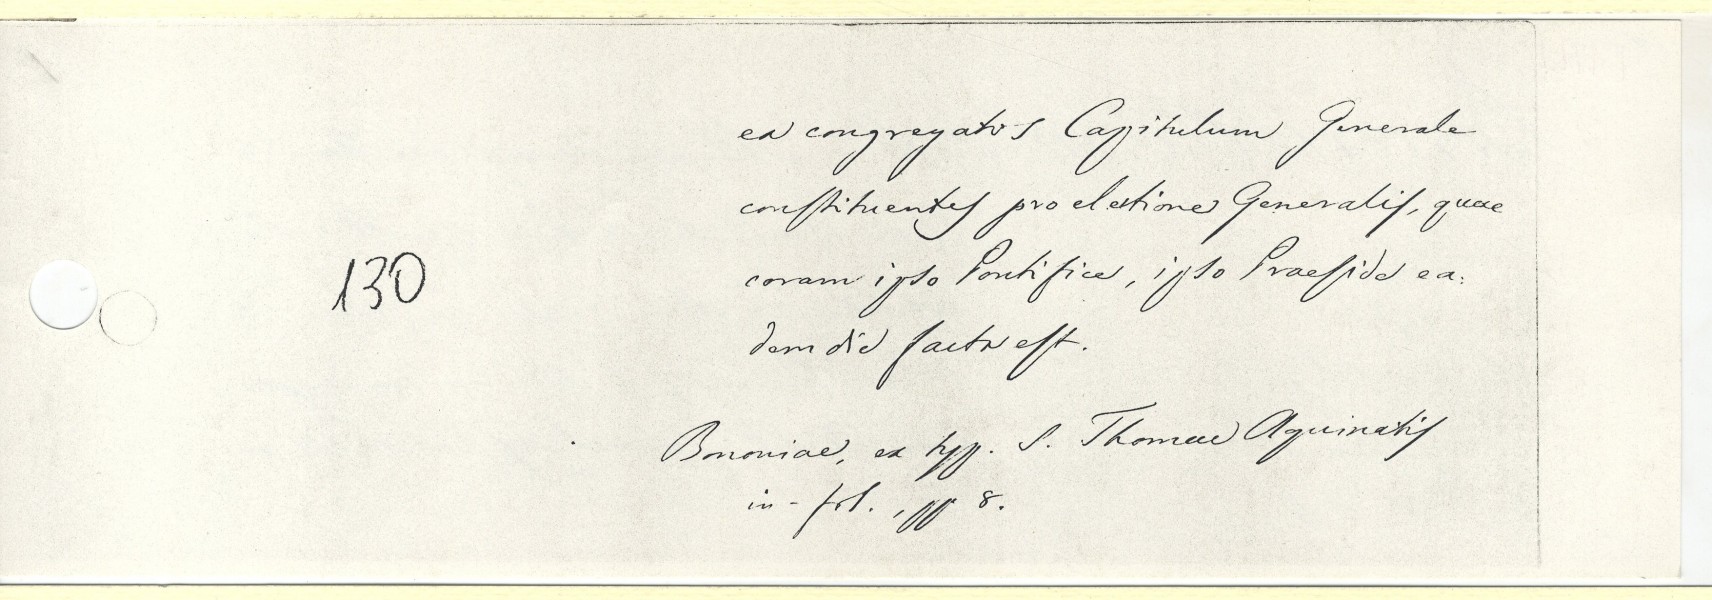 ea congregatos Capitulum Generale
constituentes pro electione Generalis, quae
coram ipso Pontifice, ipso Praeside ea:
dem die facta est.
130
Bononiae, ex typ. S. Thomae Aquinatis
in-fol., pp 8.